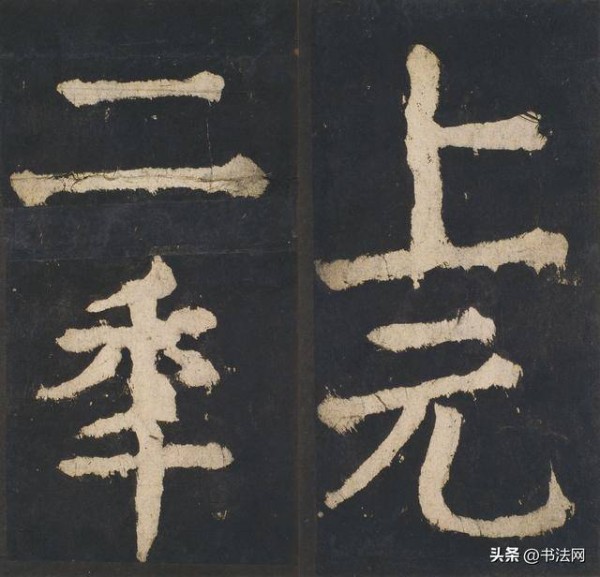 上元
二秊
头条 @书法网